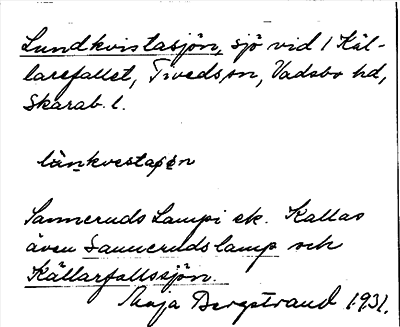 Lundkvistasjön, sjö vid 1 Käl-
larefallet, Tiveds sn, Vadsbo hd,
Skarab. l.
länkvestaşøn
Sanneruds Lampi ek. Kallas
även Sannerudslamp och
Källarfallssjön.
Maja Bergstrand 1931.